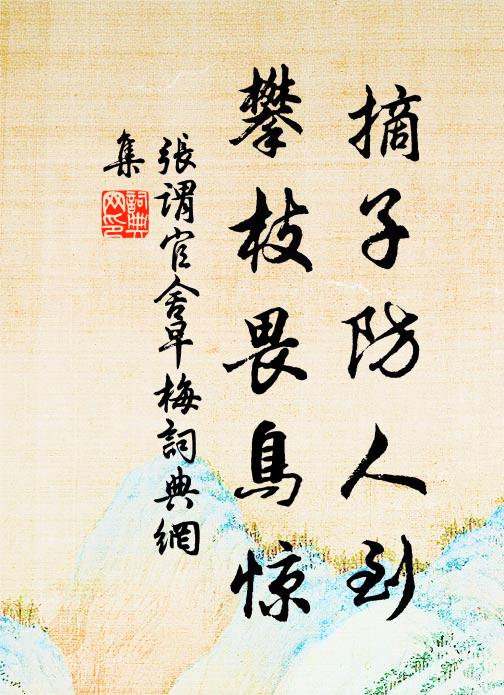 摘子防人到
攀枝畏鳥惊
張谓官舍早梅詞典網
集
詞典
网印